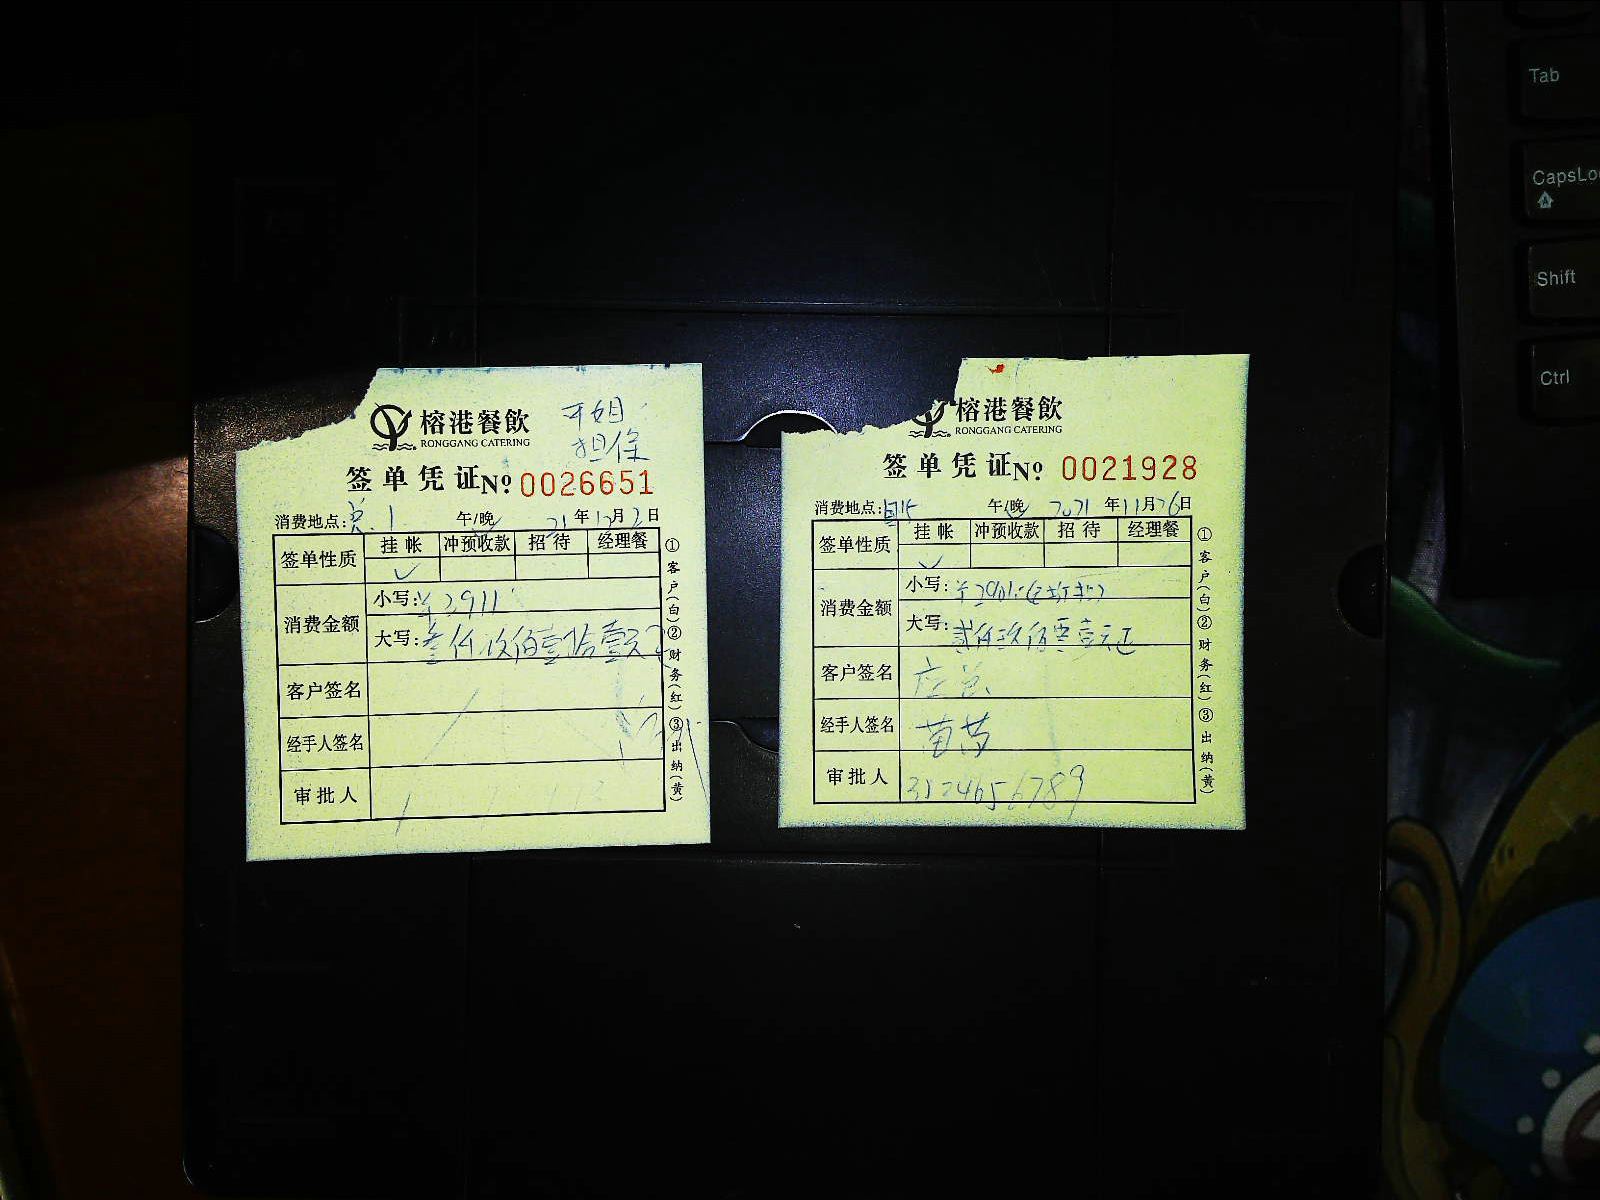 榕港餐飲
RONGGANG CATERING
担保
签单凭证 No. 0026651
消费地点: 午/晚 21年12月2日
签单性质 挂帐 冲预收款 招待 经理餐
✓
消费金额 小写:¥3911
大写:叁仟玖佰壹拾壹元
客户签名
经手人签名
审批人
①客户(白)②财务(红)③出纳(黄)
榕港餐飲
RONGGANG CATERING
签单凭证 No. 0021928
消费地点: 午/晚 2021年11月26日
签单性质 挂帐 冲预收款 招待 经理餐
✓
消费金额 小写:¥2901
大写:贰仟玖佰零壹元正
客户签名
经手人签名 苗苗
审批人 3124656789
①客户(白)②财务(红)③出纳(黄)
Tab
CapsLoc
Shift
Ctrl